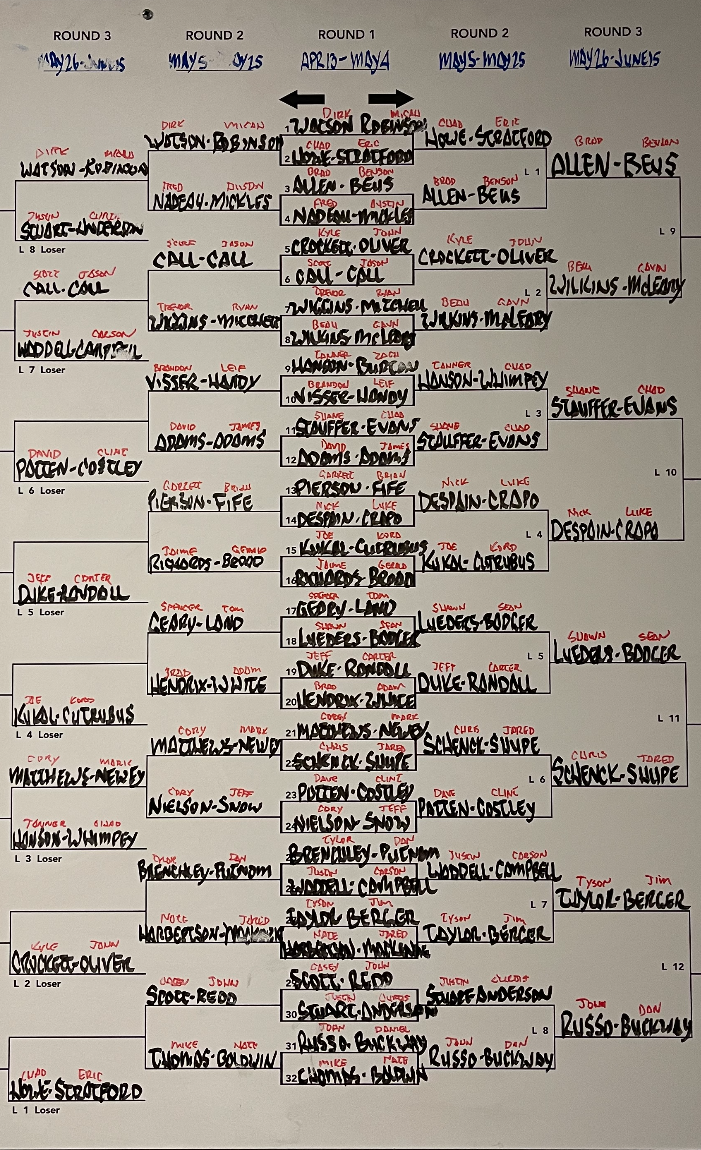 ROUND 3 ROUND 2 ROUND 1 ROUND 2 ROUND 3
MAY26-JUNE15 MAY5- AY25 APR13-MAY4 MAY5-MAY25 MAY26-JUNE15
DIRK MICAH
1 WATSON ROBINSON
CHAD ERIC
2 HOWE-STRATFORD
BRAD BENSON
3 ALLEN-BEUS
FRED AUSTIN
4 NADEAU-MICKLES
KYLE JOHN
5 CROCKETT-OLIVER
SCOTT JASON
6 CALL-CALL
TREVOR RYAN
7 WIGGINS-MITCHELL
BEAU GAVN
8 WILKINS-McLEARY
TANNER ZACH
9 HANSON-BURTON
BRANDON LEIF
10 VISSER-HANDY
SHANE CHAD
11 STAUFFER-EVANS
DAVID JAMES
12 ADAMS-ADAMS
GARRETT BRIAN
13 PIERSON-FIFE
NICK LUKE
14 DESPAIN-CRAPO
JOE KORD
15 KUKAL-CUTRUBUS
JAIME GERALD
16 RICHARDS-BROAD
SPENCER TOM
17 GEARY-LAND
SHAWN SEAN
18 LUEDERS-BADGER
JEFF CARTER
19 DUKE-RANDALL
BRAD ADAM
20 HENDRIX-WHITE
COREY MARK
21 MATTHEWS-NEWEY
CHRIS JARED
22 SCHENCK-SHUPE
DAVE CLINT
23 PATTEN-COSTLEY
CORY JEFF
24 NIELSON-SNOW
TYLOR DAN
BRENCHLEY-PUTNAM
JUSTIN CARSON
WADDELL-CAMPBELL
TYSON JIM
TAYLOR BERGER
NATE JARED
HARBERTSON-MACKENNE
CASEY JOHN
29 SCOTT-REDD
JUSTIN CURTIS
30 STUART-ANDERSON
JOHN DANIEL
31 RUSSO-BUCKWAY
MIKE NATE
32 THOMAS-BALDWIN
DIRK MICAH
WATSON-ROBINSON
FRED AUSTIN
NADEAU-MICKLES
SCOTT JASON
CALL-CALL
TREVOR RYAN
WIGGINS-MITCHELL
BRANDON LEIF
VISSER-HANDY
DAVID JAMES
ADAMS-ADAMS
GARRETT BRIAN
PIERSON-FIFE
JAIME GERALD
RICHARDS-BROAD
SPENCER TOM
GEARY-LAND
BRAD ADAM
HENDRIX-WHITE
CORY MARK
MATTHEWS-NEWEY
CORY JEFF
NIELSON-SNOW
TYLOR DAN
BRENCHLEY-PUTNAM
NATE JARED
HARBERTSON-
CASEY JOHN
SCOTT-REDD
MIKE NATE
THOMAS-BALDWIN
DIRK MICAH
WATSON-ROBINSON
JUSTIN CURTIS
STUART-ANDERSON
L 8 Loser
SCOTT JASON
CALL-CALL
JUSTIN CARSON
WADDELL-CAMPBELL
L 7 Loser
DAVID CLINT
PATTEN-COSTLEY
L 6 Loser
JEFF CARTER
DUKE-RANDALL
L 5 Loser
JOE KORD
KUKAL-CUTRUBUS
L 4 Loser
CORY MARK
MATTHEWS-NEWEY
TANNER CHAD
HANSON-WHIMPEY
L 3 Loser
KYLE JOHN
CROCKETT-OLIVER
L 2 Loser
CHAD ERIC
HOWE-STRATFORD
L 1 Loser
CHAD ERIC
HOWE-STRATFORD
L 1
BRAD BENSON
ALLEN-BEUS
KYLE JOHN
CROCKETT-OLIVER
L 2
BEAU GAVN
WILKINS-McLEARY
TANNER CHAD
HANSON-WHIMPEY
L 3
SHANE CHAD
STAUFFER-EVANS
NICK LUKE
DESPAIN-CRAPO
L 4
JOE KORD
KUKAL-CUTRUBUS
SHAWN SEAN
LUEDERS-BADGER
L 5
JEFF CARTER
DUKE-RANDALL
CHRIS JARED
SCHENCK-SHUPE
L 6
DAVE CLINE
PATTEN-COSTLEY
JUSTIN CARSON
WADDELL-CAMPBELL
L 7
TYSON JIM
TAYLOR-BERGER
JUSTIN CURTIS
STUART ANDERSON
L 8
JOHN DAN
RUSSO-BUCKWAY
BRAD BENSON
ALLEN-BEUS
L 9
BEAU GAVIN
WILKINS-McLEARY
SHANE CHAD
STAUFFER-EVANS
L 10
NICK LUKE
DESPAIN-CRAPO
SHAWN SEAN
LUEDERS-BADGER
L 11
CHRIS JARED
SCHENCK-SHUPE
TYSON JIM
TAYLOR-BERGER
L 12
JOHN DAN
RUSSO-BUCKWAY